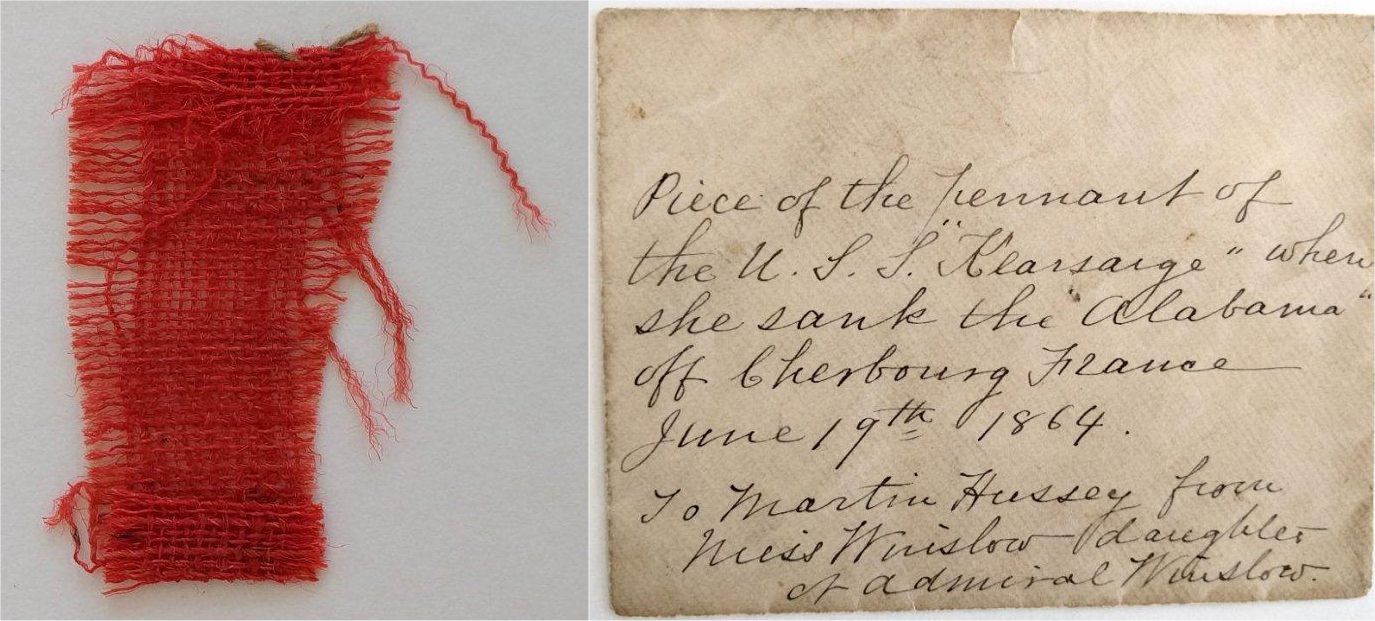 Piece of the pennant of
the U. S. S. "Kearsarge" when
she sank the "Alabama"
off Cherbourg France
June 19th 1864.
To Martin Hussey from
Miss Winslow daughter
of Admiral Winslow.